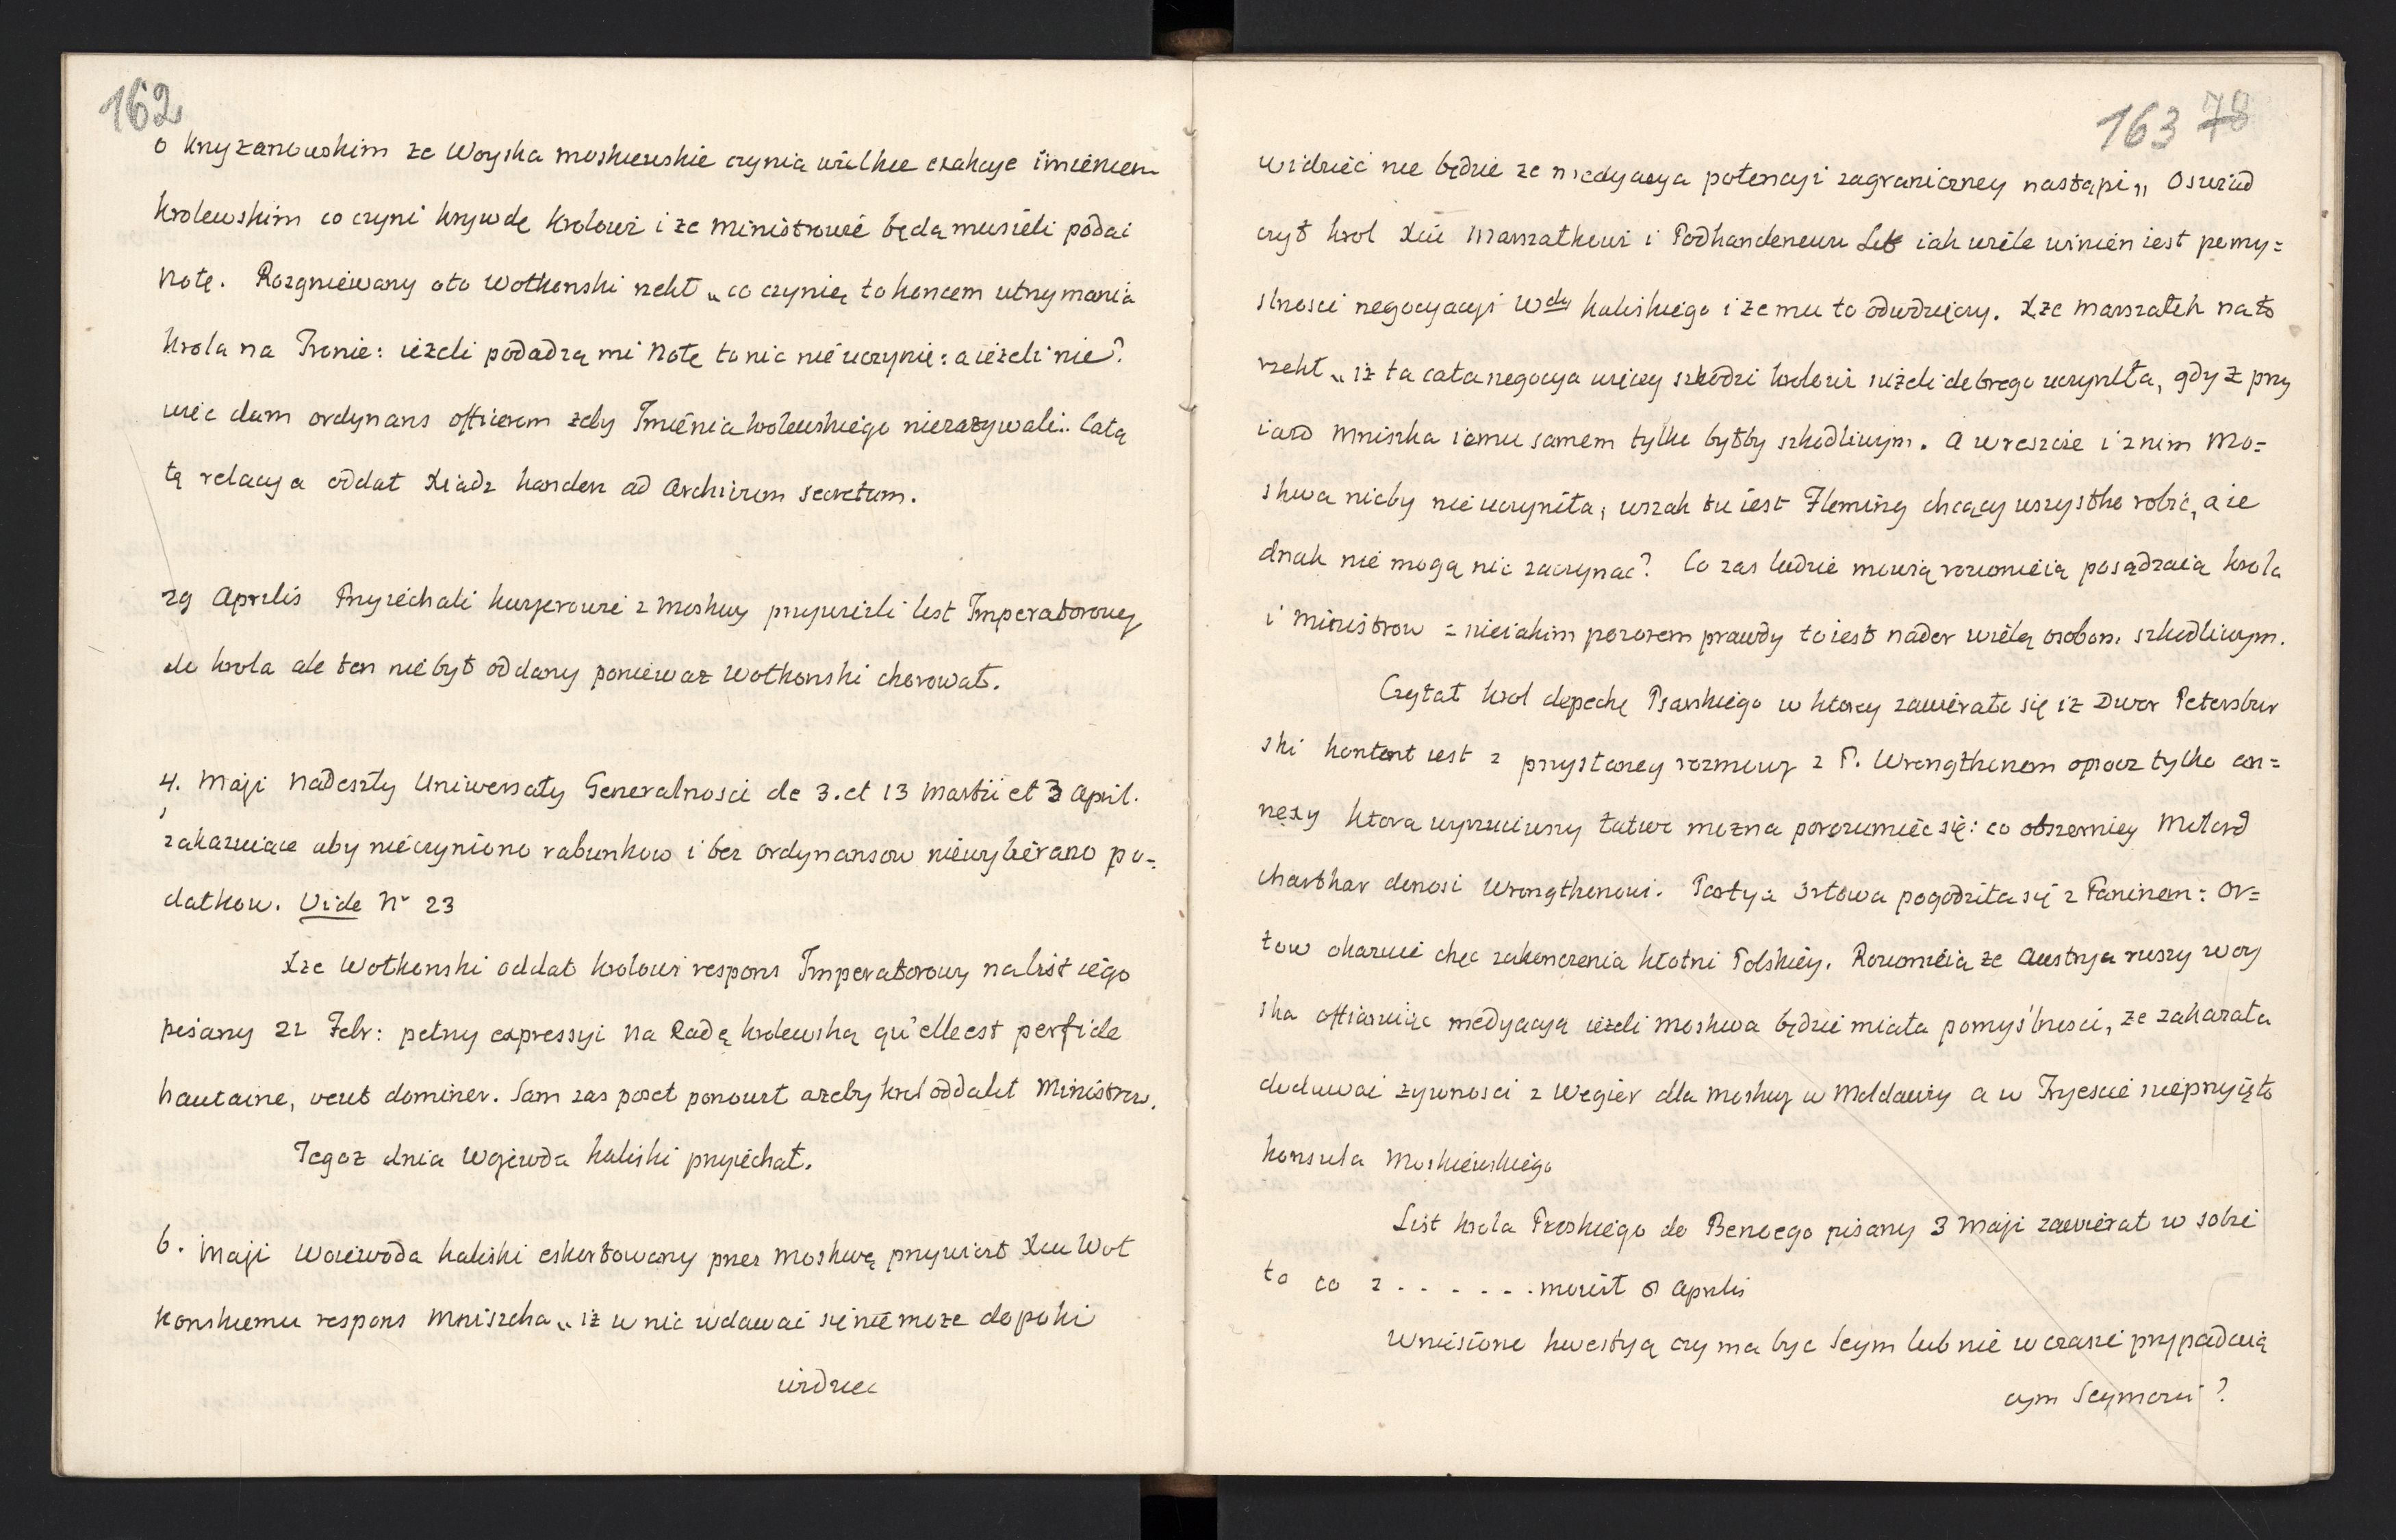 162
o Krzyżanowskim że Woyska moskiewskie czynia wielkie exakcye imieniem
Krolewskim co czyni krzywdę krolowi i że Ministrowie będą musieli podać
Notę. Rozgniewany oto Wołkonski rzekł „co czynię to koncem utrzymania
Krola na Tronie: ieżeli podadzą mi Notę to nic nie uczynię: a ieżeli nie?
więc dam ordynans officerom żeby Imienia krolewskiego nierazywali.. Całą
tę relacya oddał Xiądz kanclerz ad Archivum secretum.
29 Aprilis Przyiechali kuryerowie z Moskwy przywiezli list Imperatorowey
do krola ale ten nie był oddany poniewaz Wołkonski chorował.
4. Maji Nadeszły Uniwersały Generalnosci de 3. et 13 Martii et 3 April.
zakazuiace aby nieczyniono rabunkow i bez ordynansow niewybierano po-
datkow. Vide Nr 23
Xże Wołkonski oddał krolowi respons Imperatorowy na list iego
pisany 22 Febr: pełny expressyi na Radę krolewską qu'elle est perfide
hautaine, veut dominer. Sam zas poseł ponowił azeby krol oddalił Ministrow.
Tegoz dnia Wojewoda kaliski przyiechał.
6. Maji Woiewoda kaliski eskortowany przez Moskwę przywiozł Xciu Woł
konskiemu respons Mniszcha „iż w nic wdawać się nie może dopoki
widziec
163 78
widzieć nie będzie że medyacya potencyi zagraniczney nastąpi„ Oswiad
czył krol Xciu Marszałkowi i Podkanclerzemu Lit iak wiele winien iest pomy=
slnosci negocyacyi Wdy kaliskiego i że mu to odwdzięczy. Xże Marszałek na to
rzekł „iż ta cała negocya więcey szkodzi krolowi niżeli dobrego uczyniła, gdyż przy
iazd Mniszka iemu samem tylko byłby szkodliwym. A wreszcie i z nim Mo=
skwa nicby nie uczyniła, wszak tu iest Fleming chcący wszystko robić, a ie
dnak nie mogą nic zaczynac? Co zas ludzie mowią rozumieią posądzaią krola
i Ministrow z nieiakim pozorem prawdy to iest nader wielą osobom szkodliwym.
Czytał krol depeche Psarskiego w ktorey zawierało się iz Dwor Petersbur
ski kontent iest z przystoyney rozmowy z P. Wrougthonem oprocz tylko an=
nexy ktora wyrzuciwszy łatwo mozna porozumieć się: co obszerniey Milord
Chatkar donosi Wrougthonowi. Partya Orłowa pogodziła się z Paninem: Or=
łow okazuie chęc zakonczenia kłotni Polskiey. Rozumieia że Austrya ruszy woy
ska offiaruiąc medyacyą ieżeli Moskwa będzie miała pomyślnosci, ze zakazała
dodawać zywnosci z Węgier dla Moskwy w Moldawiy a w Tryescie nieprzyięto
konsula Moskiewskiego
List krola Pruskiego do Benoego pisany 3 Maji zawierał w sobie
to co z . . . . . . . mowił 8 Aprilis
Wniesiono kwestyą czy ma byc Seym lub nie w czasie przypadaią
cym Seymowi ?